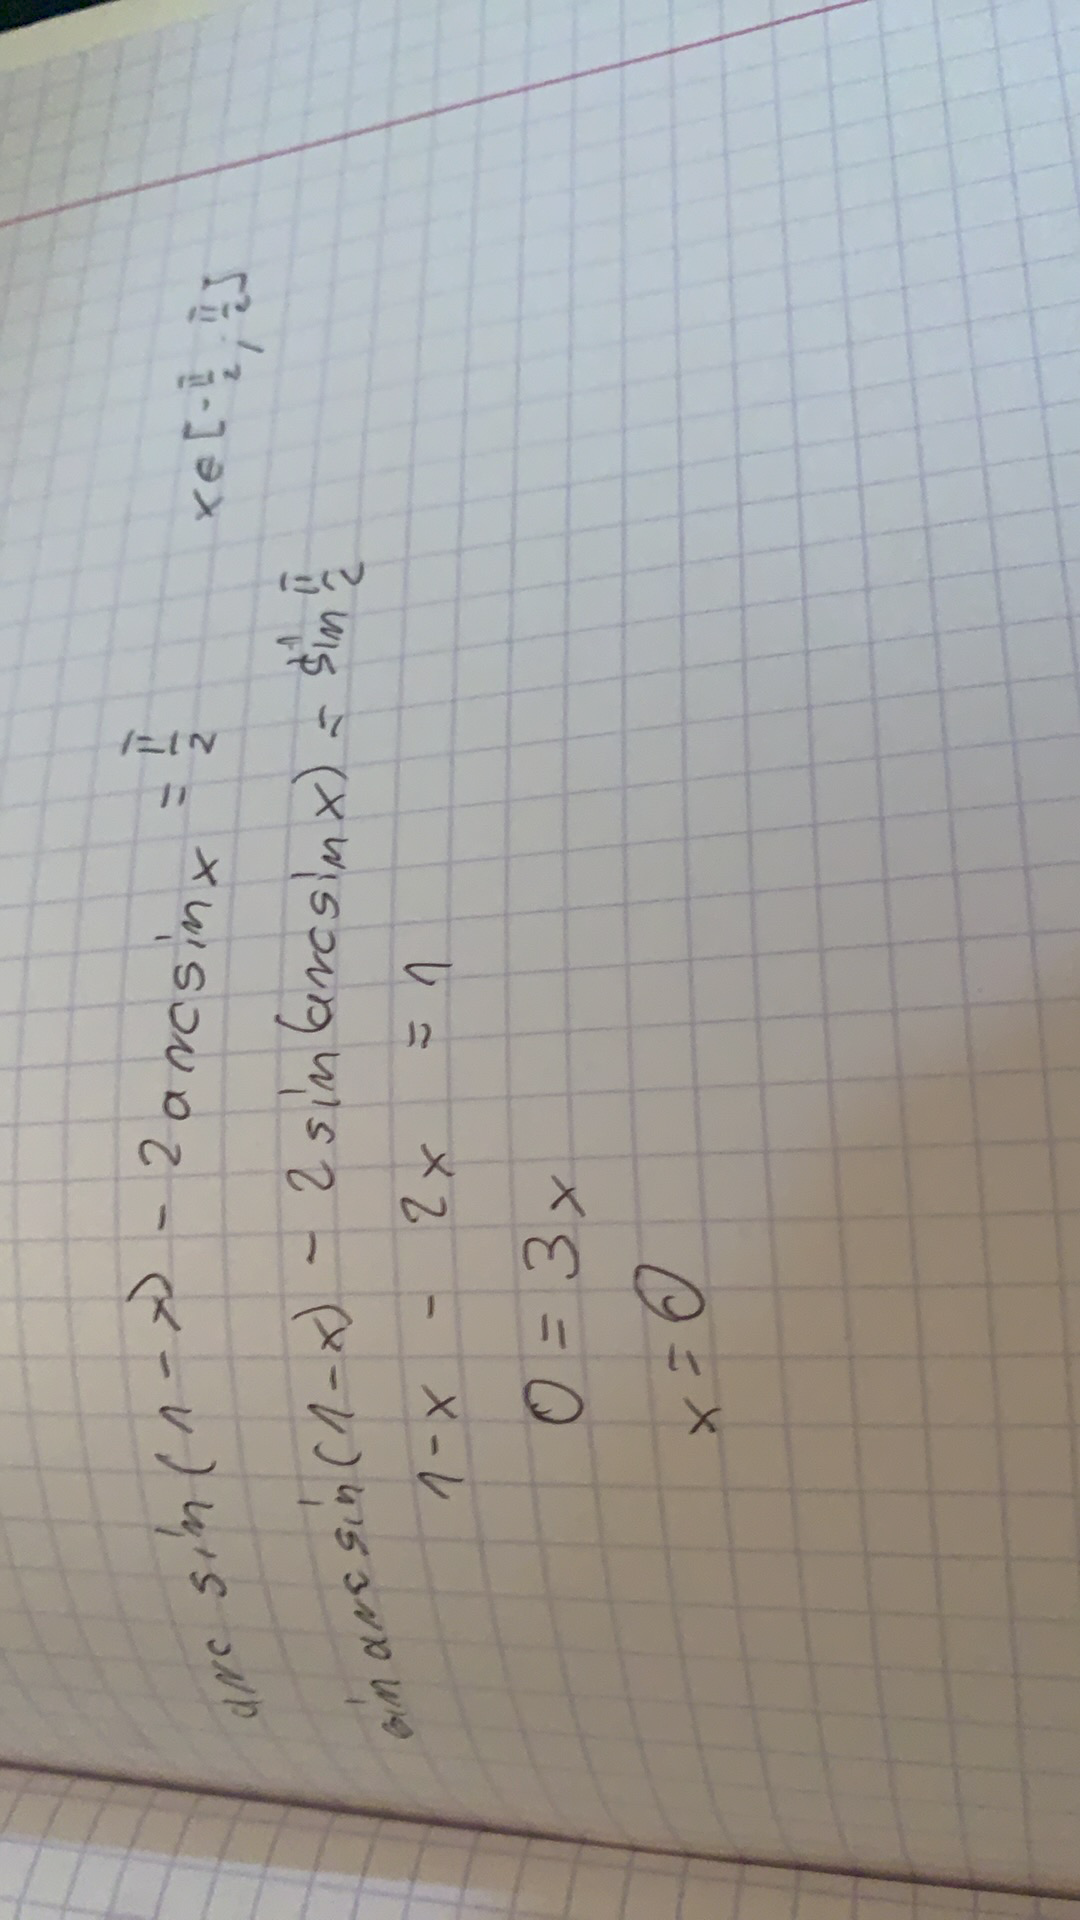 arc sin (1 - x) - 2 arcsin x = π/2 x ∈ [-π/2, π/2]
sin arcsin (1-x) - 2 sin (arcsin x) = sin π/2
1-x - 2x = 1
0 = 3x
x = 0